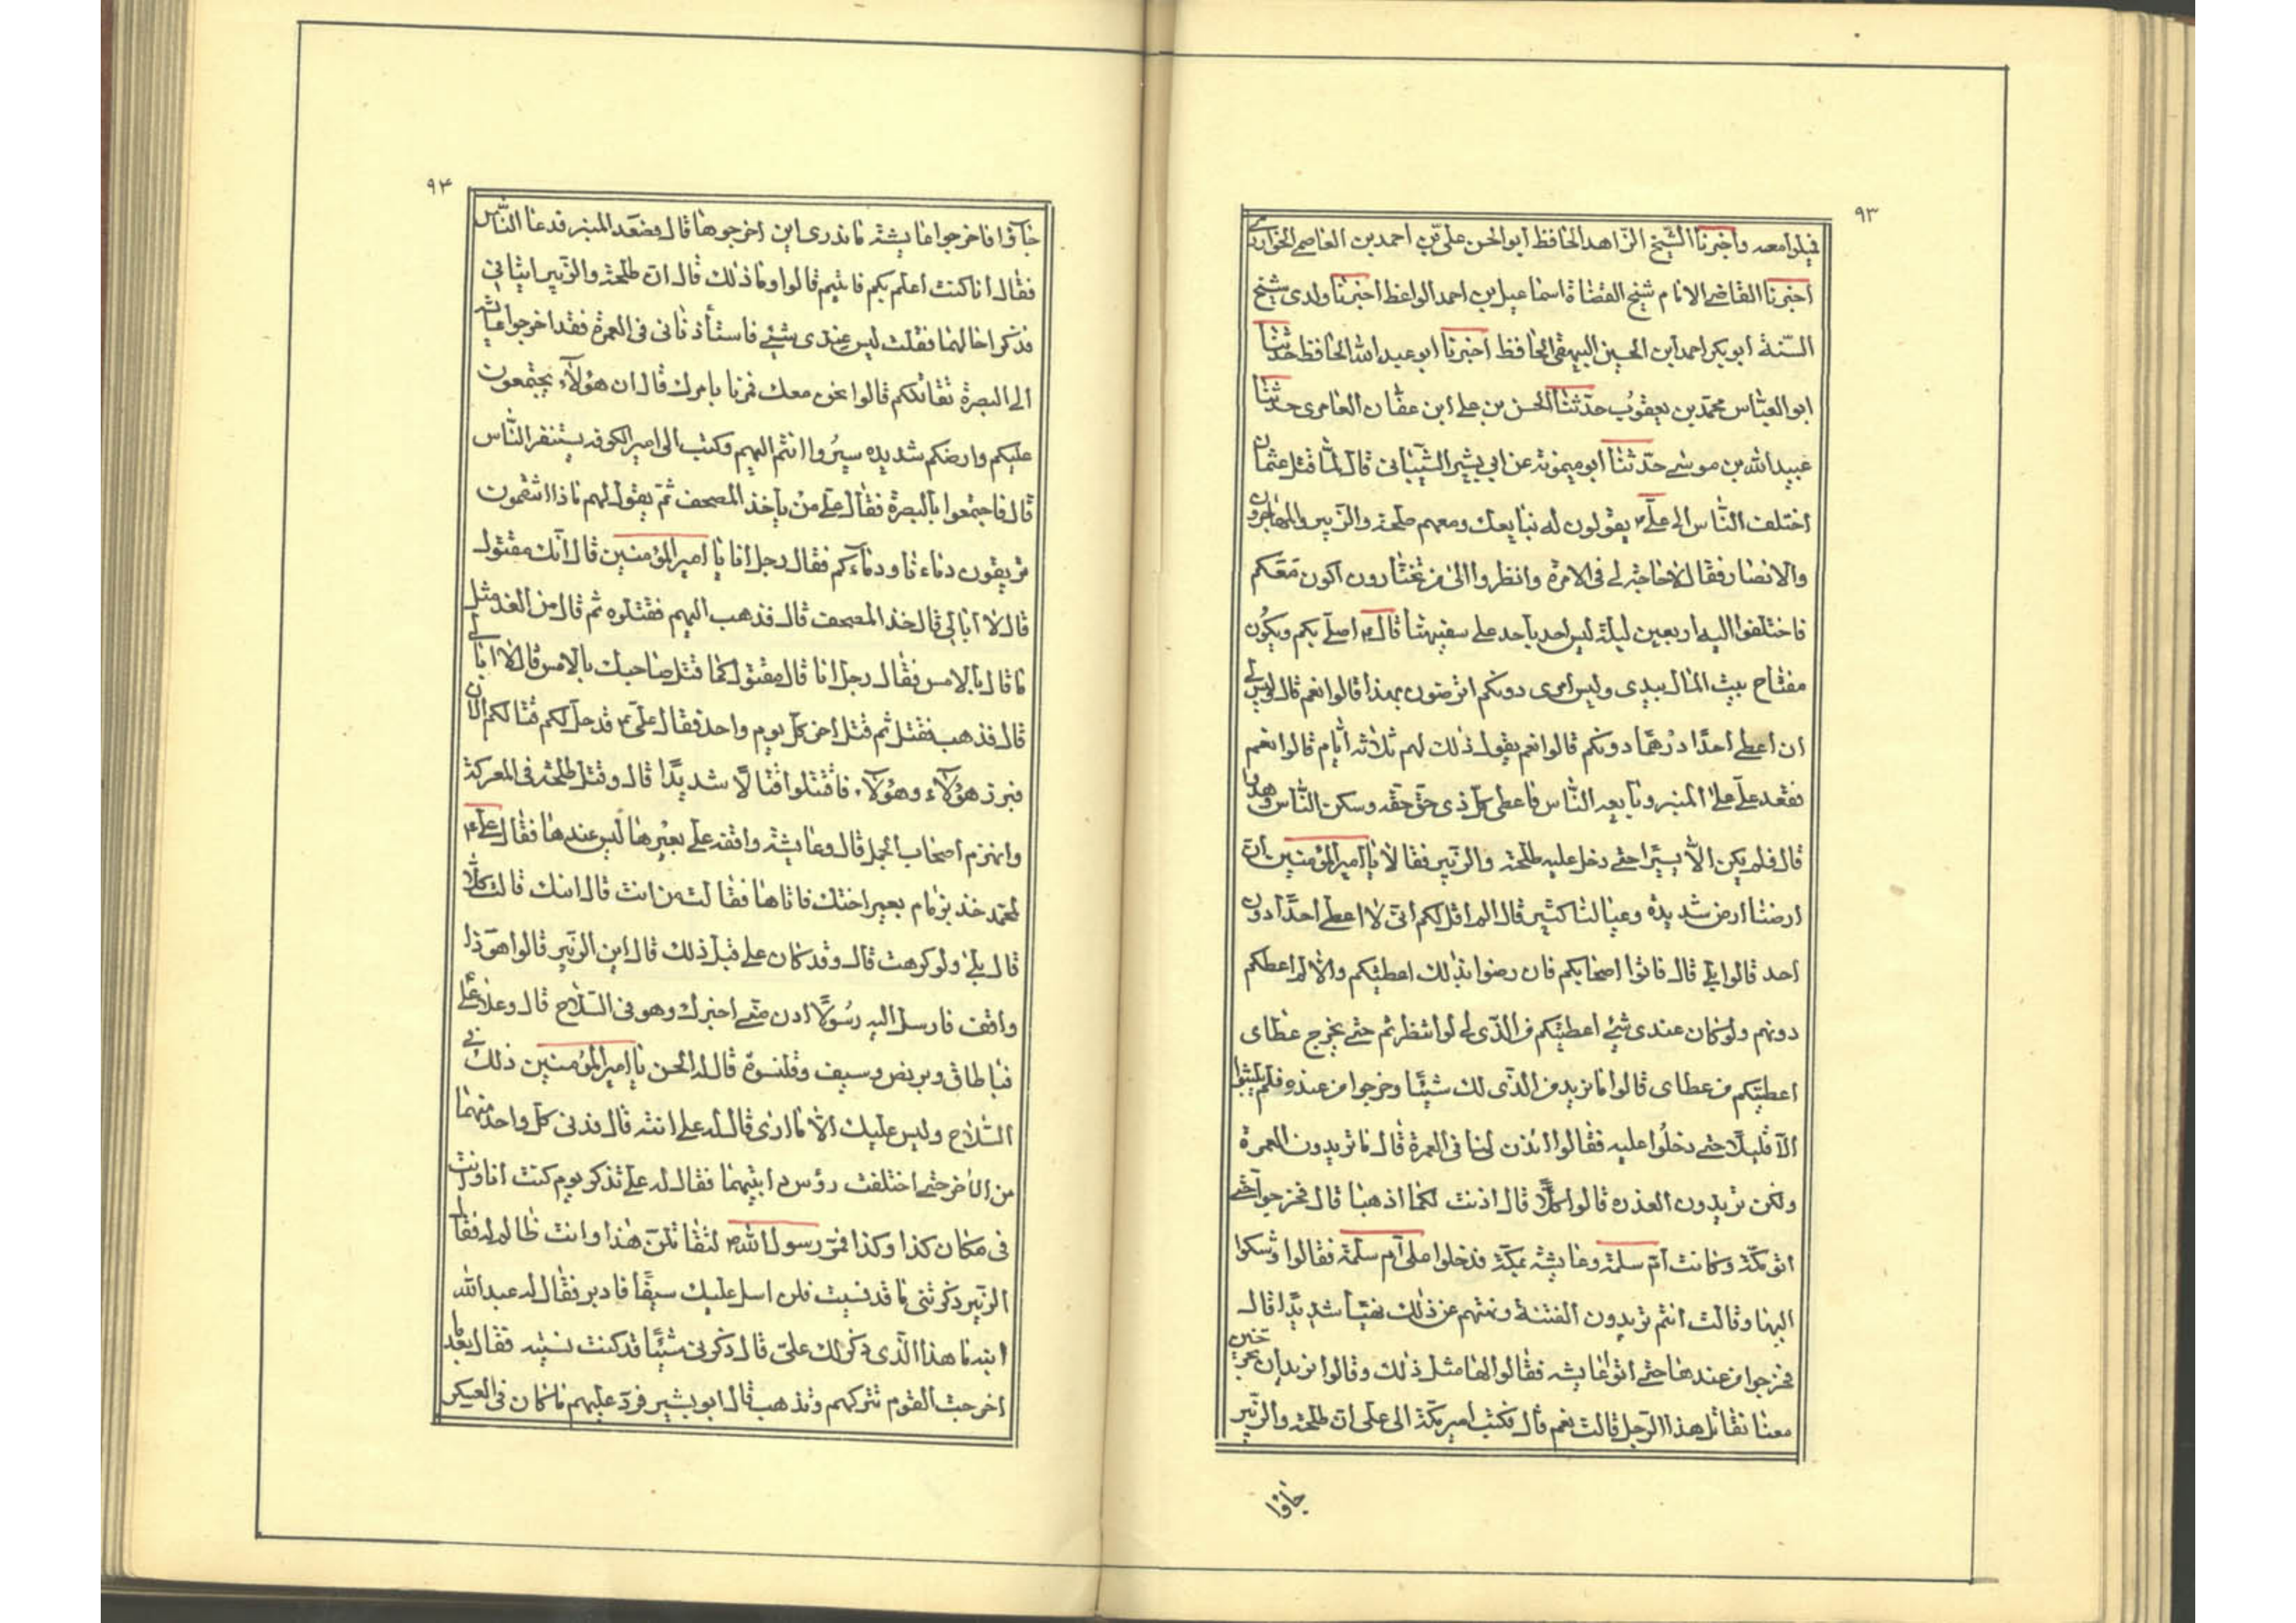 ٩٣
قبلوا معه واخبرنا الشّيخ الزّاهد الحافظ ابوالحسن علىّ بن احمد بن العاصمے الخوارزمے
اخبرنا القاضے الامام شيخ القضاة اسماعيل بن احمد الواعظ اخبرنا ولدى شيخ
السّنة ابوبكر احمد ابن الحسين البيهقى الحافظ اخبرنا ابو عبدالله الحافظ حدّثنا
ابوالعبّاس محمّد بن يعقوب حدّثنا الحسن بن علے ابن عفّان العامرى حدّثنا
عبيدالله بن موسے حدّثنا ابو ميمونة عن ابى بشير الشّيبانى قال لمّا قتل عثمان
اختلف النّاس الى علےّ يقولون له نبايعك ومعهم طلحة والزّبير والمهاجرون
والانصار فقال لا حاجة لے فى الامرة وانظروا الى من تختارون اكون معكم
فاختلفوا اليه اربعين ليلة ليس احد ياخذ علے سفيهنا قال اصلّے بكم ويكون
مفتاح بيت المال بيدى وليس امرى دونكم اترضون بهذا قالوا نعم قال وليس لے
ان اعطے احدًا درهمًا دونكم قالوا نعم يقول ذلك لهم ثلاثة ايّام قالوا نعم
فقعد علےّ علے المنبر وبايعه النّاس فاعطى كلّ ذى حقّ حقّه وسكن النّاس وهدوا
قال فلم يكن الاّ يسيرًا حتّے دخل عليه طلحة والزّبير فقالا يا اميرالمؤمنين انّ
ارضنا ارض شديدة وعيالنا كثير قال الم اقل لكم انّى لا اعطے احدًا دون
احد قالوا بلے قال فاتوا اصحابكم فان رضوا بذلك اعطيتكم والاّ لم اعطكم
دونهم ولو كان عندى شئ اعطيتكم من الّذى لے لو انتظرتم حتّے يخرج عطاى
اعطيتكم من عطاى قالوا ما نريد من الّذى لك شيئًا وخرجوا من عنده فلم يلبثوا
الاّ قليلًا حتّے دخلوا عليه فقالوا ائذن لنا فى العمرة قال ما تريدون العمرة
ولكن تريدون الغدرة قالوا كلّا قال اذنت لكما اذهبا قال فخرجوا حتّے
اتو مكّة وكانت امّ سلمة وعايشة بمكّة فدخلوا على امّ سلمة فقالوا وشكوا
اليها وقالت انتم تريدون الفتنة ونهتهم عن ذلك نهيًا شديدًا قال
فخرجوا من عندها حتّے اتوا عايشة فقالوا لها مثل ذلك وقالوا نريد ان تخرجين
معنا نقاتل هذا الرّجل قالت نعم قال فكتب امير مكّة الى على انّ طلحة والزّبير
جآؤا
٩٤
جآؤا فاخرجوا عايشة ما ندرى اين اخرجوها قال فصعد المنبر فدعا النّاس
فقال انا كنت اعلم بكم فابيتم قالوا وما ذلك قال انّ طلحة والزّبير اتيانى
فذكرا حالهما فقلت ليس عندى شئ فاستأذنانى فى العمرة فقد اخرجوا عايشة
الے البصرة تقاتلكم قالوا نحن معك فمرنا بامرك قال ان هؤلآء يجتمعون
عليكم وارضكم شديده سيروا انتم اليهم وكتب الى امير الكوفه يستنفر النّاس
قال فاجتمعوا بالبصرة فقال علے من يأخذ المصحف ثمّ يقول لهم ماذا تنقمون
تريقون دماءنا ودماءكم فقال رجل انا يا اميرالمؤمنين قال انّك مقتول
قال لا ابالى قال خذ المصحف قال فذهب اليهم فقتلوه ثم قال من الغد مثل
ما قال بالامس فقال رجل انا قال مقتول كما قتل صاحبك بالامس قال لا ابالے
قال فذهب فقتل ثم قتل اخر كلّ يوم واحد فقال علىّ قد حلّ لكم قتالكم الان
فبرز هؤلآء وهؤلآء فاقتتلوا قتالًا شديدًا قال وقتل طلحة فى المعركة
وانهزم اصحاب الجمل قال وعايشة واقفة علے بعيرها ليس عندها فقال علےّ
لمحمّد خذ بزمام بعير اختك فاتاها فقالت من انت قال ابنك قالت كلّا
قال بلى ولو كرهت قال وقد كان علے قبل ذلك قال اين الزّبير قالوا هو ذا
واقف فارسل اليه رسولًا ادن منّے اخبرك وهو فى السّلاح قال وعلاه علے
قبا طاق وبريض وسيف وقلنسوة قال له الحسن يا اميرالمؤمنين ذلك فے
السّلاح وليس عليك الاّ ما ارى قال له علے انته قال فدنى كلّ واحد منهما
من الاخر حتّے اختلفت رؤس دابتيهما فقال له علے تذكر يوم كنت انا وانت
فى مكان كذا وكذا فمرّ رسول الله لتقاتلنّ هذا وانت ظالم له فقال
الزّبير ذكرتنى ما قد نسيت فلن اسل عليك سيفًا فادبر فقال له عبدالله
ابنه ما هذا الّذى ذكر لك علىّ قال ذكرنى شيئًا قد كنت نسيته فقال بعد ما
اخرجت القوم تتركهم وتذهب قال ابو بشير فردّ عليهم ما كان فى العسكر